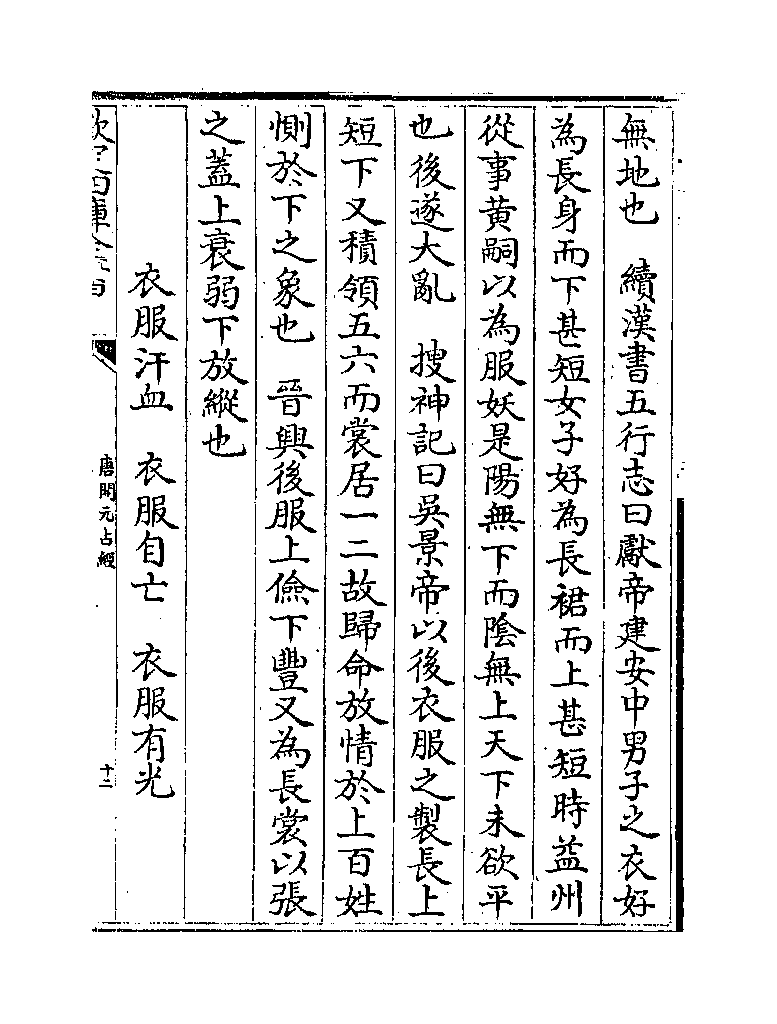 無地也　續漢書五行志曰獻帝建安中男子之衣好
為長身而下甚短女子好為長裙而上甚短時益州
從事黄嗣以為服妖是陽無下而陰無上天下未欲平
也後遂大亂　搜神記曰吳景帝以後衣服之製長上
短下又積領五六而裳居一二故歸命放情於上百姓
惻於下之象也　晉興後服上儉下豐又為長裳以張
之蓋上衰弱下放縱也
衣服汗血　衣服自亡　衣服有光
唐開元占經
十二